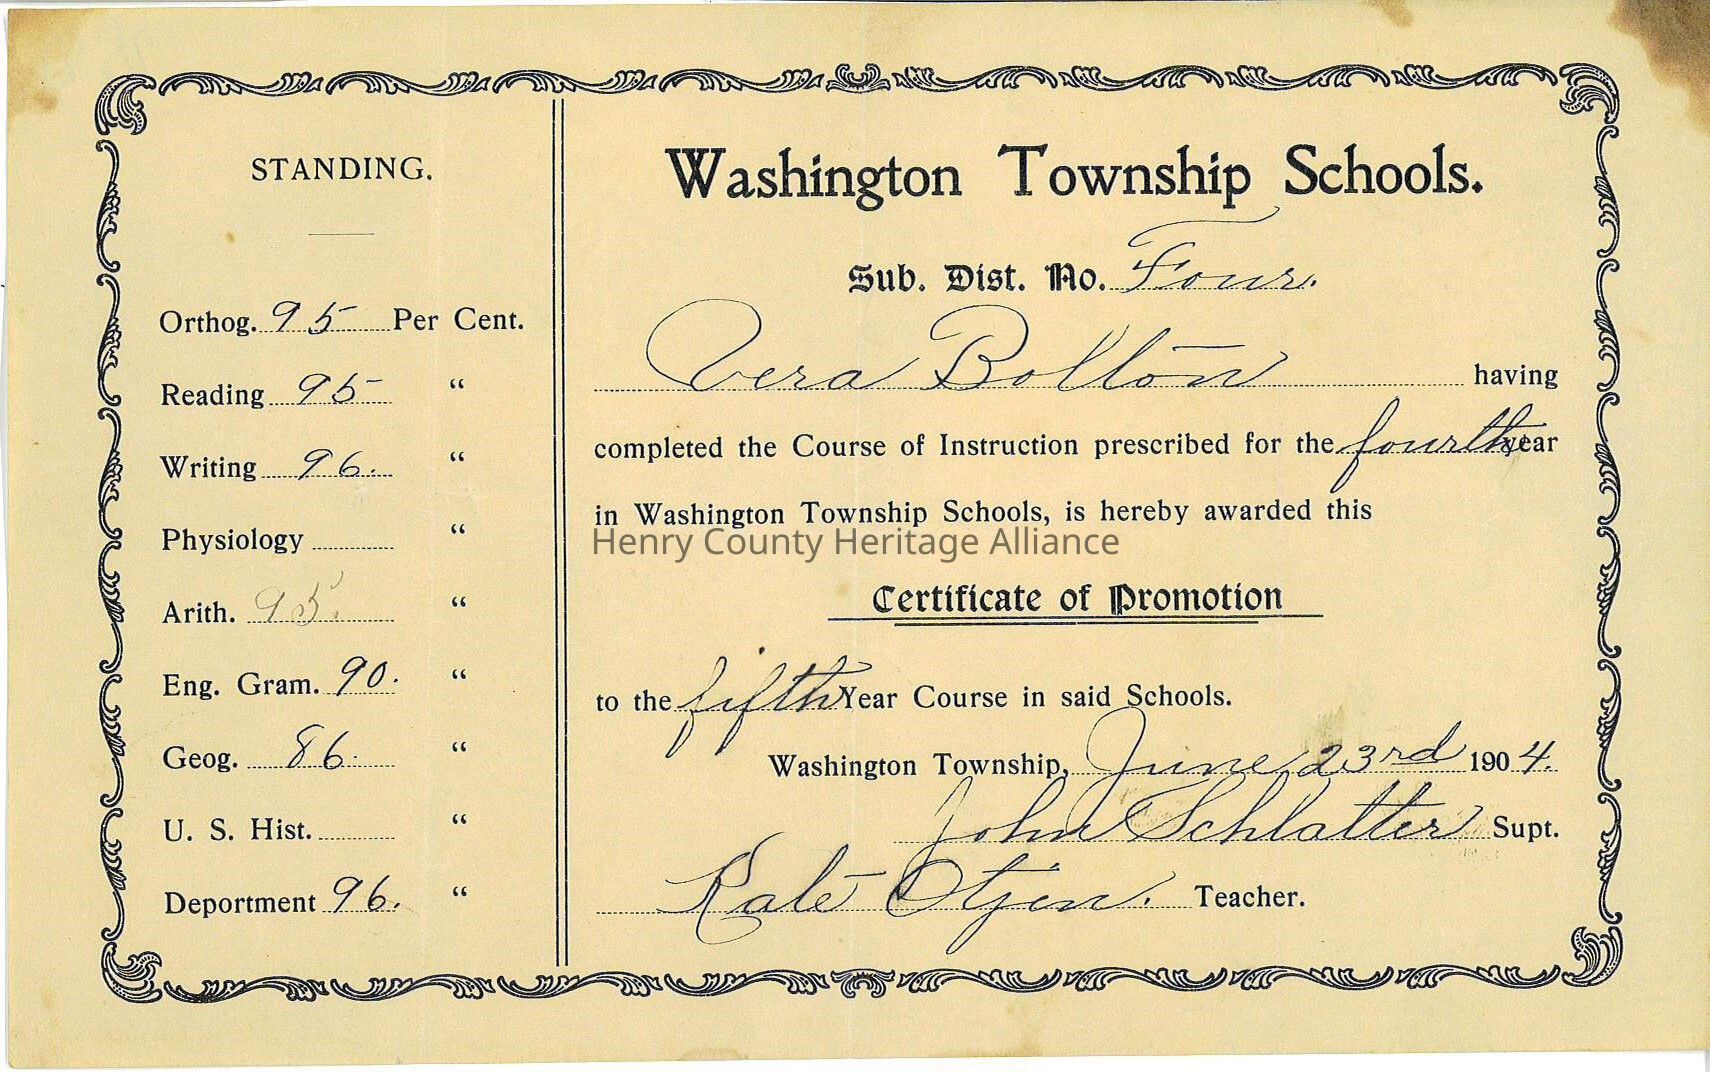 STANDING.
Orthog. 95 Per Cent.
Reading 95 "
Writing 96. "
Physiology "
Arith. 95. "
Eng. Gram. 90. "
Geog. 86. "
U. S. Hist. "
Deportment 96. "
Washington Township Schools.
Sub. Dist. No. Four.
Vera Bolton having
completed the Course of Instruction prescribed for the fourth year
in Washington Township Schools, is hereby awarded this
Henry County Heritage Alliance
Certificate of Promotion
to the fifth Year Course in said Schools.
Washington Township, June 23rd 1904.
John Schlatter Supt.
Kate Otjen. Teacher.